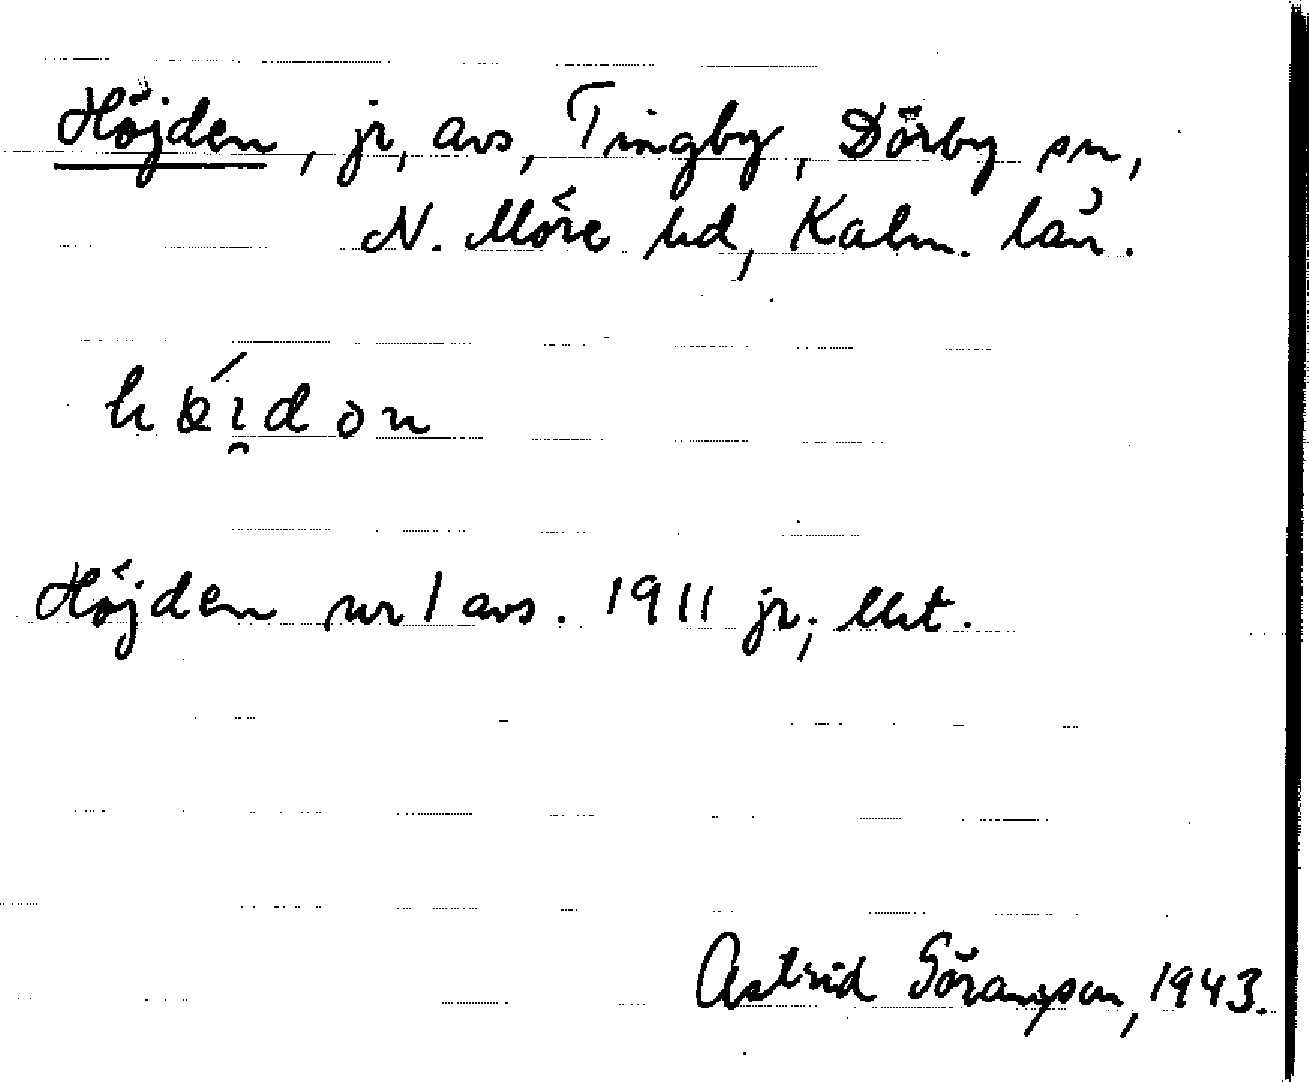 Höjden, jr, avs, Tingby, Dörby sn,
N. Möre hd, Kalm. län.
Höjden nr 1 avs. 1911 jr; Ukt.
Astrid Göransson, 1943.